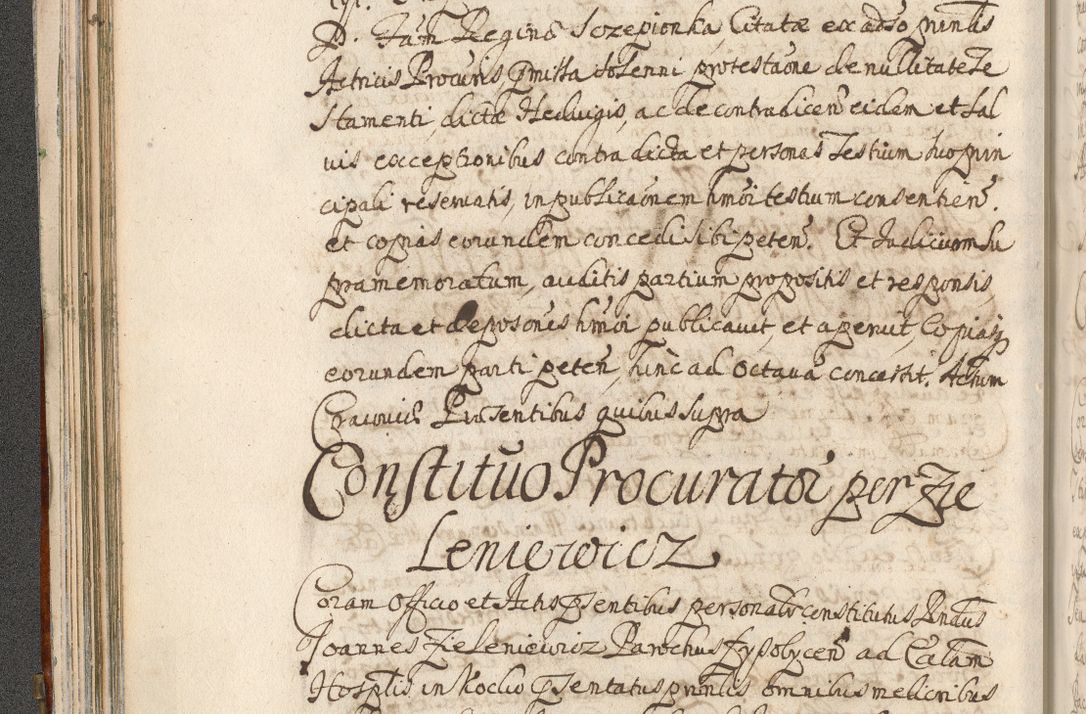 D. Fam Regina Sczepionka, Citatæ ex adso prntis
Actricis Procuris, præmissa solenni protestaõne de nullitate Te
stamenti, dictæ Hedvigis, ac de contradicen eidem et sal
vis exceptionibus contra dicta et personas Testium suo prin
cipali reservatis, in publicaõnem hmõi testium consentien.
et copias eorundem concedi sibi peten. Et Judicium su
pramemoratum, auditis partium propositis et responsis,
dicta et deposones hmõi publicavit, et aperuit, Copiasq
eorundem parti peten, hinc ad octavã concessit. Actum
Cracoviæ Præsentibus quibus supra
Constituo Procuratoř per Zie
Leniewicz
Coram Officio et Actis pſentibus personalr constitutus Rndus
Joannes Zieleniewicz Parochus Zypolycen ad
Hosplis in Koclio pſentatus omnibus melioribus